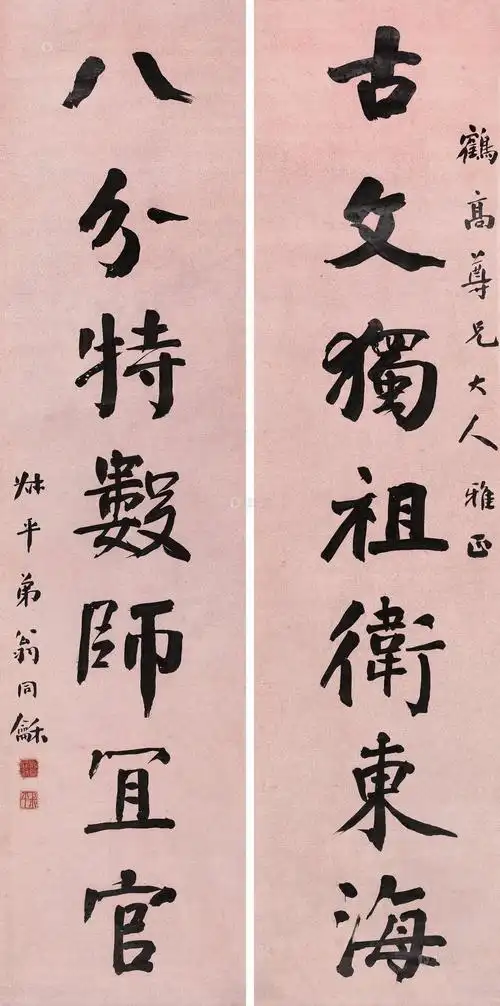 鶴高尊兄大人雅正
古文獨祖衛東海
八分特數師宜官
叔平弟翁同龢